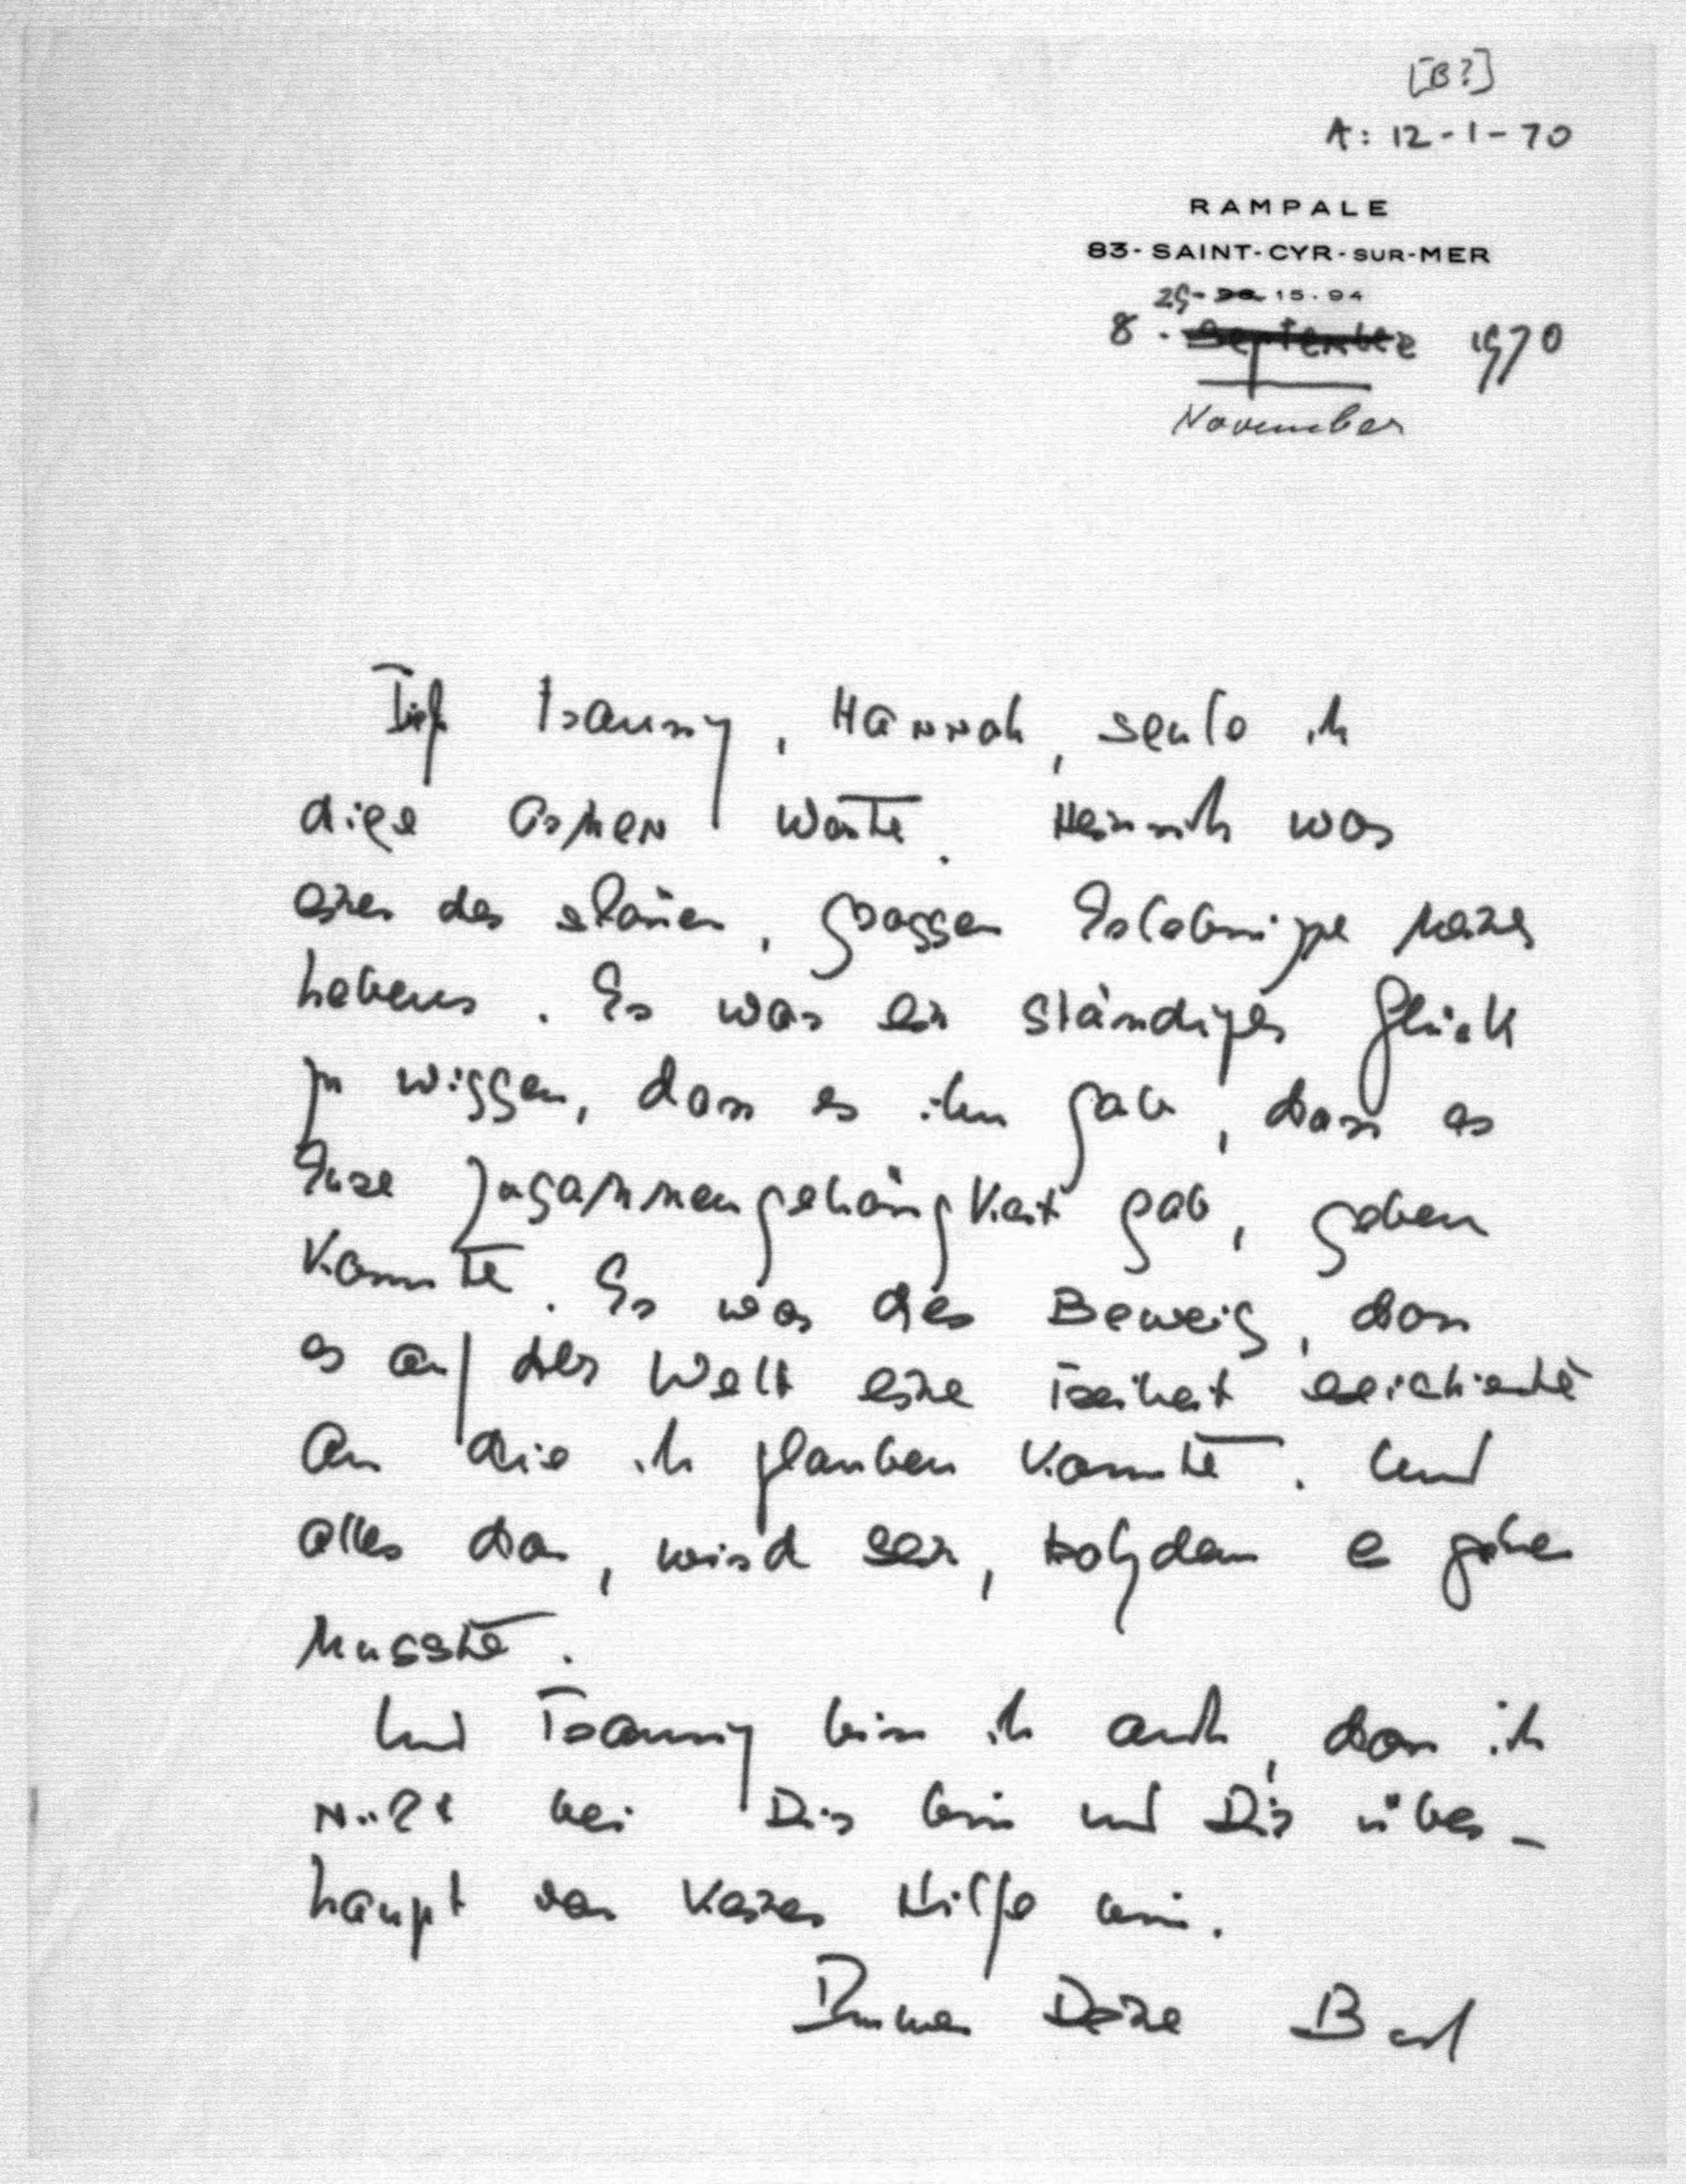 [B?]
A: 12-1-70
RAMPALE
83-SAINT-CYR-SUR-MER
29- 15.94
8. September 1970
November
Tief traurig, Hannah, sende ich
diese armen Worte. Heinrich war
eines der , grossen Erlebnisse meines
Lebens. Es war ein ständiges Glück
zu wissen, dass es ihn gab, dass es
Eure Zusammengehörigkeit gab, geben
konnte. Es war der Beweis, dass
es auf der Welt eine Freiheit
an die ich glauben konnte. Und
alles das, wird sein, trotzdem er gehen
musste.
Und traurig bin ich auch, dass ich
nicht bei Dir bin und Dir über-
haupt von keiner Hilfe bin.
Immer Deine